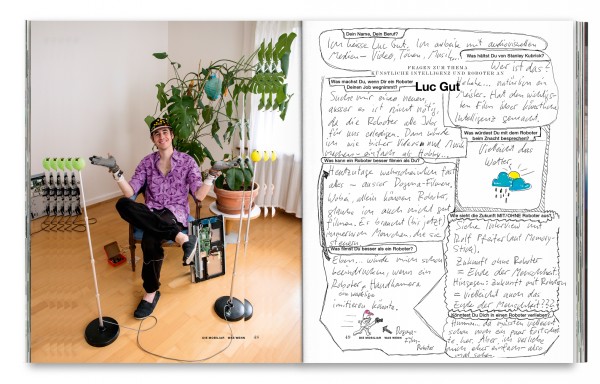 Dein Name, Dein Beruf?
Ich heisse Luc Gut. Ich arbeite mit audiovisuellen
Medien – Video, Tönen, Musik,...
FRAGEN ZUR THEMA
KÜNSTLICHE INTELLIGENZ UND ROBOTER AN
Luc Gut
Was machst Du, wenn Dir ein Roboter
Deinen Job wegnimmt?
Suche mir einen neuen,
ausser es ist nicht nötig,
da die Roboter alle Jobs
für uns erledigen. Dann würde
ich wie bisher Videos und Musik
machen – einfach als Hobby.
Was kann ein Roboter besser filmen als Du?
Heutzutage wahrscheinlich fast
alles – ausser Dogma-Filmen.
Wobei, allein können Roboter,
glaube ich auch nicht gut
filmen. Es braucht (bis jetzt)
immer noch Menschen, die sie
steuern.
Was filmst Du besser als ein Roboter?
Eben... würde mich schon
beeindrucken, wenn ein
Roboter Handkamera
imitieren könnte.
Dogma-
Film-
Roboter
Was hältst Du von Stanley Kubrick?
Wer ist das?
natürlich ein
Meister. Hat den wichtigs-
ten Film über künstliche
Intelligenz gemacht.
Was würdest Du mit dem Roboter
beim Znacht besprechen?
Vielleicht das
Wetter.
Wie sieht die Zukunft MIT/OHNE Roboter aus?
Siehe Interview mit
Rolf Pfeifer (auf Memory-
Stick).
Zukunft ohne Roboter
= Ende der Menschheit.
Hingegen: Zukunft mit Robotern
= vielleicht auch das
Ende der Menschheit???
Könntest Du Dich in einen Roboter verlieben?
Hmmm... da müssten vielleicht
schon noch ein paar Fortschrit-
te her. Aber ich verliebe
mich eher einfach – also
DIE MOBILIAR WAS WENN
DIE MOBILIAR WAS WENN